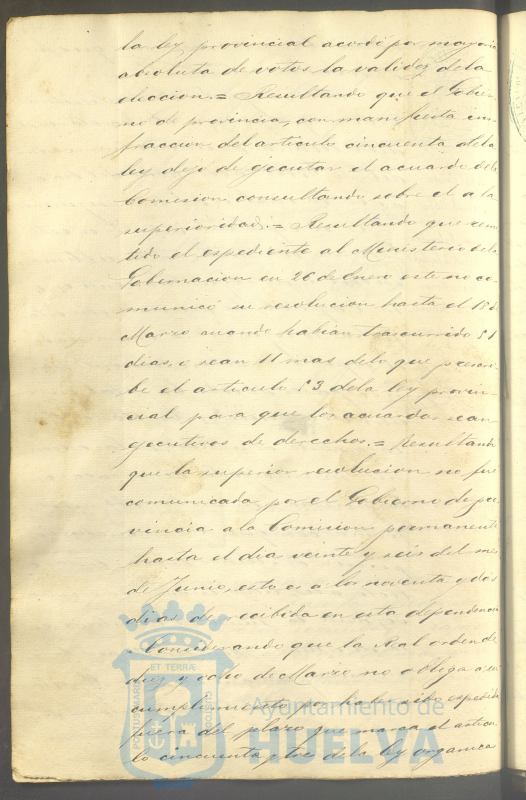 la ley provincial acordó por mayoria
absoluta de votos la validez dela
eleccion.= Resultando que el Gobier-
no de provincia, con manifiesta in-
fraccion del articulo cincuenta dela
ley dejó de ejecutar el acuerdo dela
Comision consultando sobre el a la
superioridad.= Resultando que remi-
tido el espediente al Ministerio dela
Gobernacion en 26 de Enero este no co-
municó su resolucion hasta el 18 de
Marzo cuando habian trascurrido 51
dias, ó sean 11 mas delo que prescri-
be el articulo 53 dela ley provin-
cial para que los acuerdos sean
ejecutivos de derechos.= Resultando
que la superior resolucion no fue
comunicada por el Gobierno de pro-
vincia ala Comision permanente
hasta el dia veinte y seis del mes
de Junio, esto es a los noventa y dos
dias de recibida en esta dependencia
Considerando que la Real orden de
diez y ocho de Marzo no obliga a su
cumplimiento por haber sido espedida
fuera del plazo que marca el articu-
lo cincuenta y tres de la ley organica
PORTUS MARIS ET TERRÆ CUSTODIA
Ayuntamiento de
HUELVA